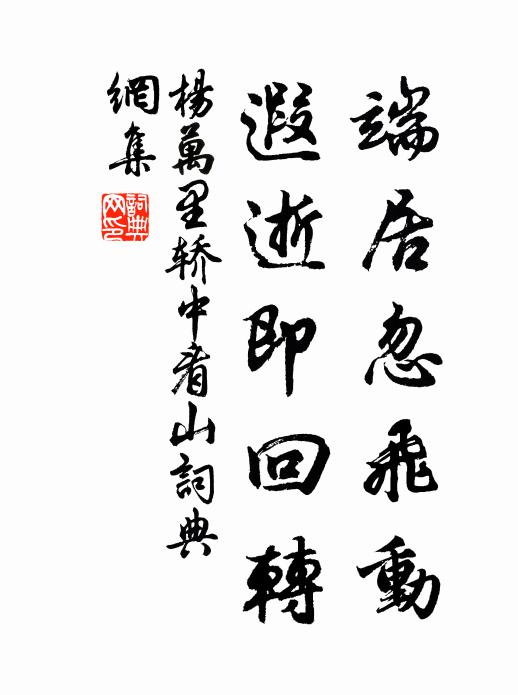 端居忽飛動
遐逝即回轉
楊萬里轿中看山詞典
網集
詞典網印